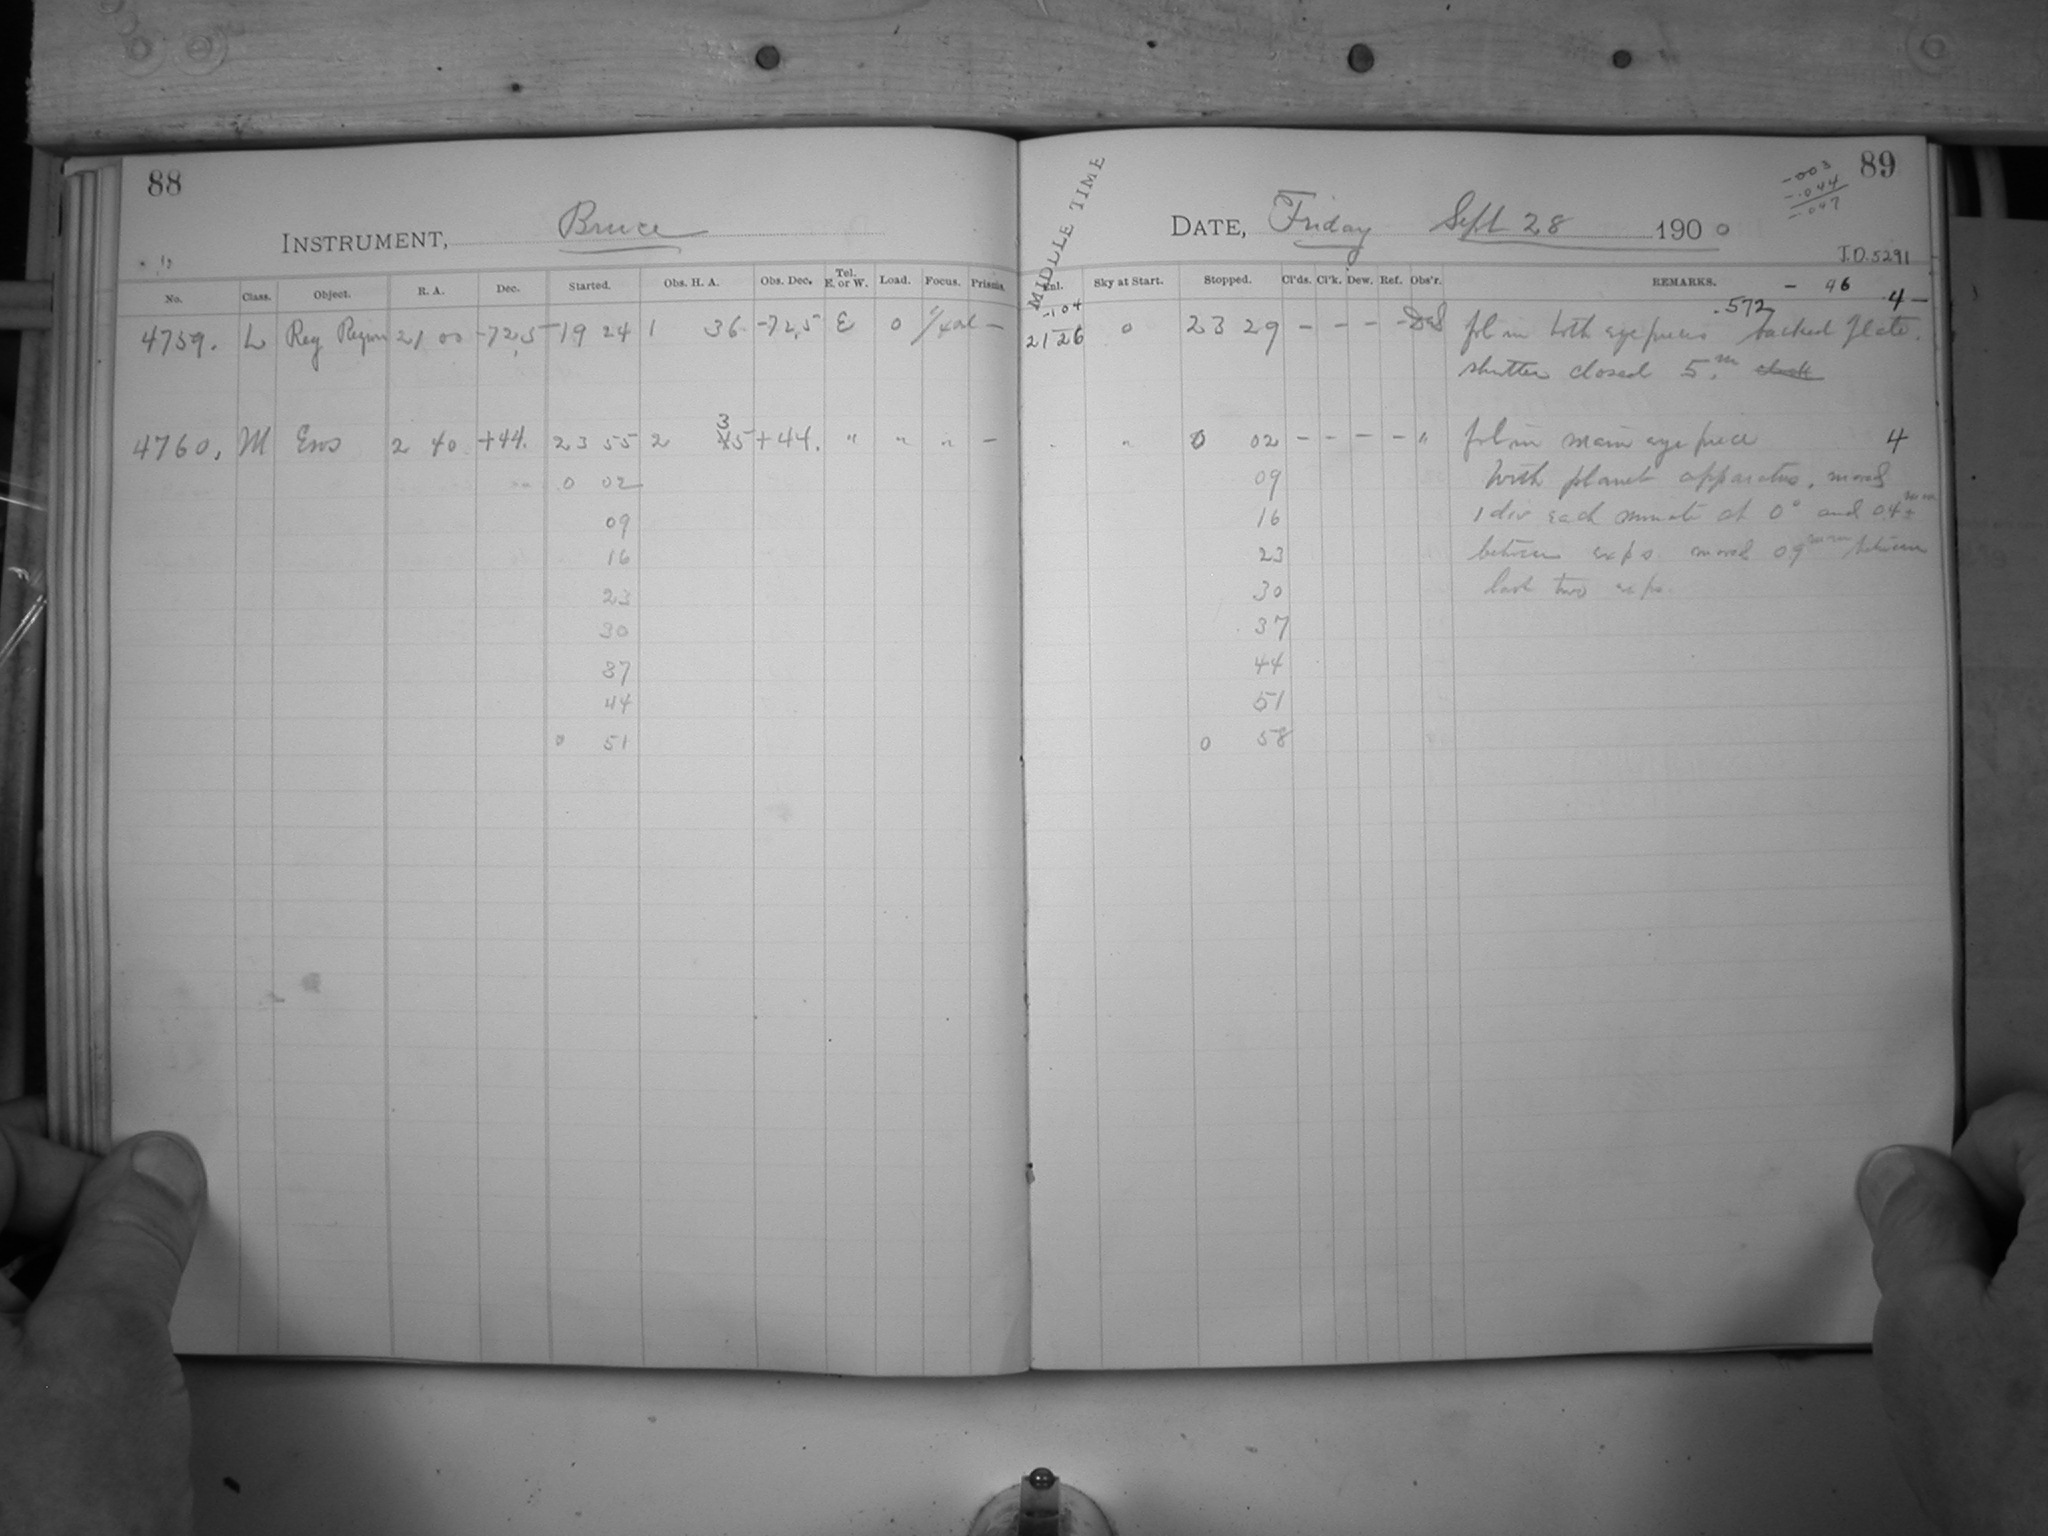 88
INSTRUMENT, Bruce
No. Class. Object. R. A. Dec. Started. Obs. H. A. Obs. Dec. Tel. E. or W. Load. Focus. Prisms.
4759. L Reg Region 21 00 -72,5 19 24 1 36 -72,5 E 0 -
4760, M Eros 2 40 +44. 23 55 2 35 +44. " " " -
0 02
09
16
23
30
37
44
0 51
89
-.003
-.044
-.047
MIDDLE TIME
DATE, Friday Sept 28 1900
J.D. 5291
Enl. Sky at Start. Stopped. Cl'ds. Cl'k. Dew. Ref. Obs'r. REMARKS. - 96
-.104 .572 4-
21 26 0 23 29 - - - - fol in both eyepieces backed plate.
shutter closed 5.m clock
" 0 02 - - - - " fol in main eye piece 4
09 With planet apparatus, moved
16 1 div each minute at 0° and 0.4 mm
23 between exps moved 0.9 mm between
30 last two exps.
37
44
51
0 58